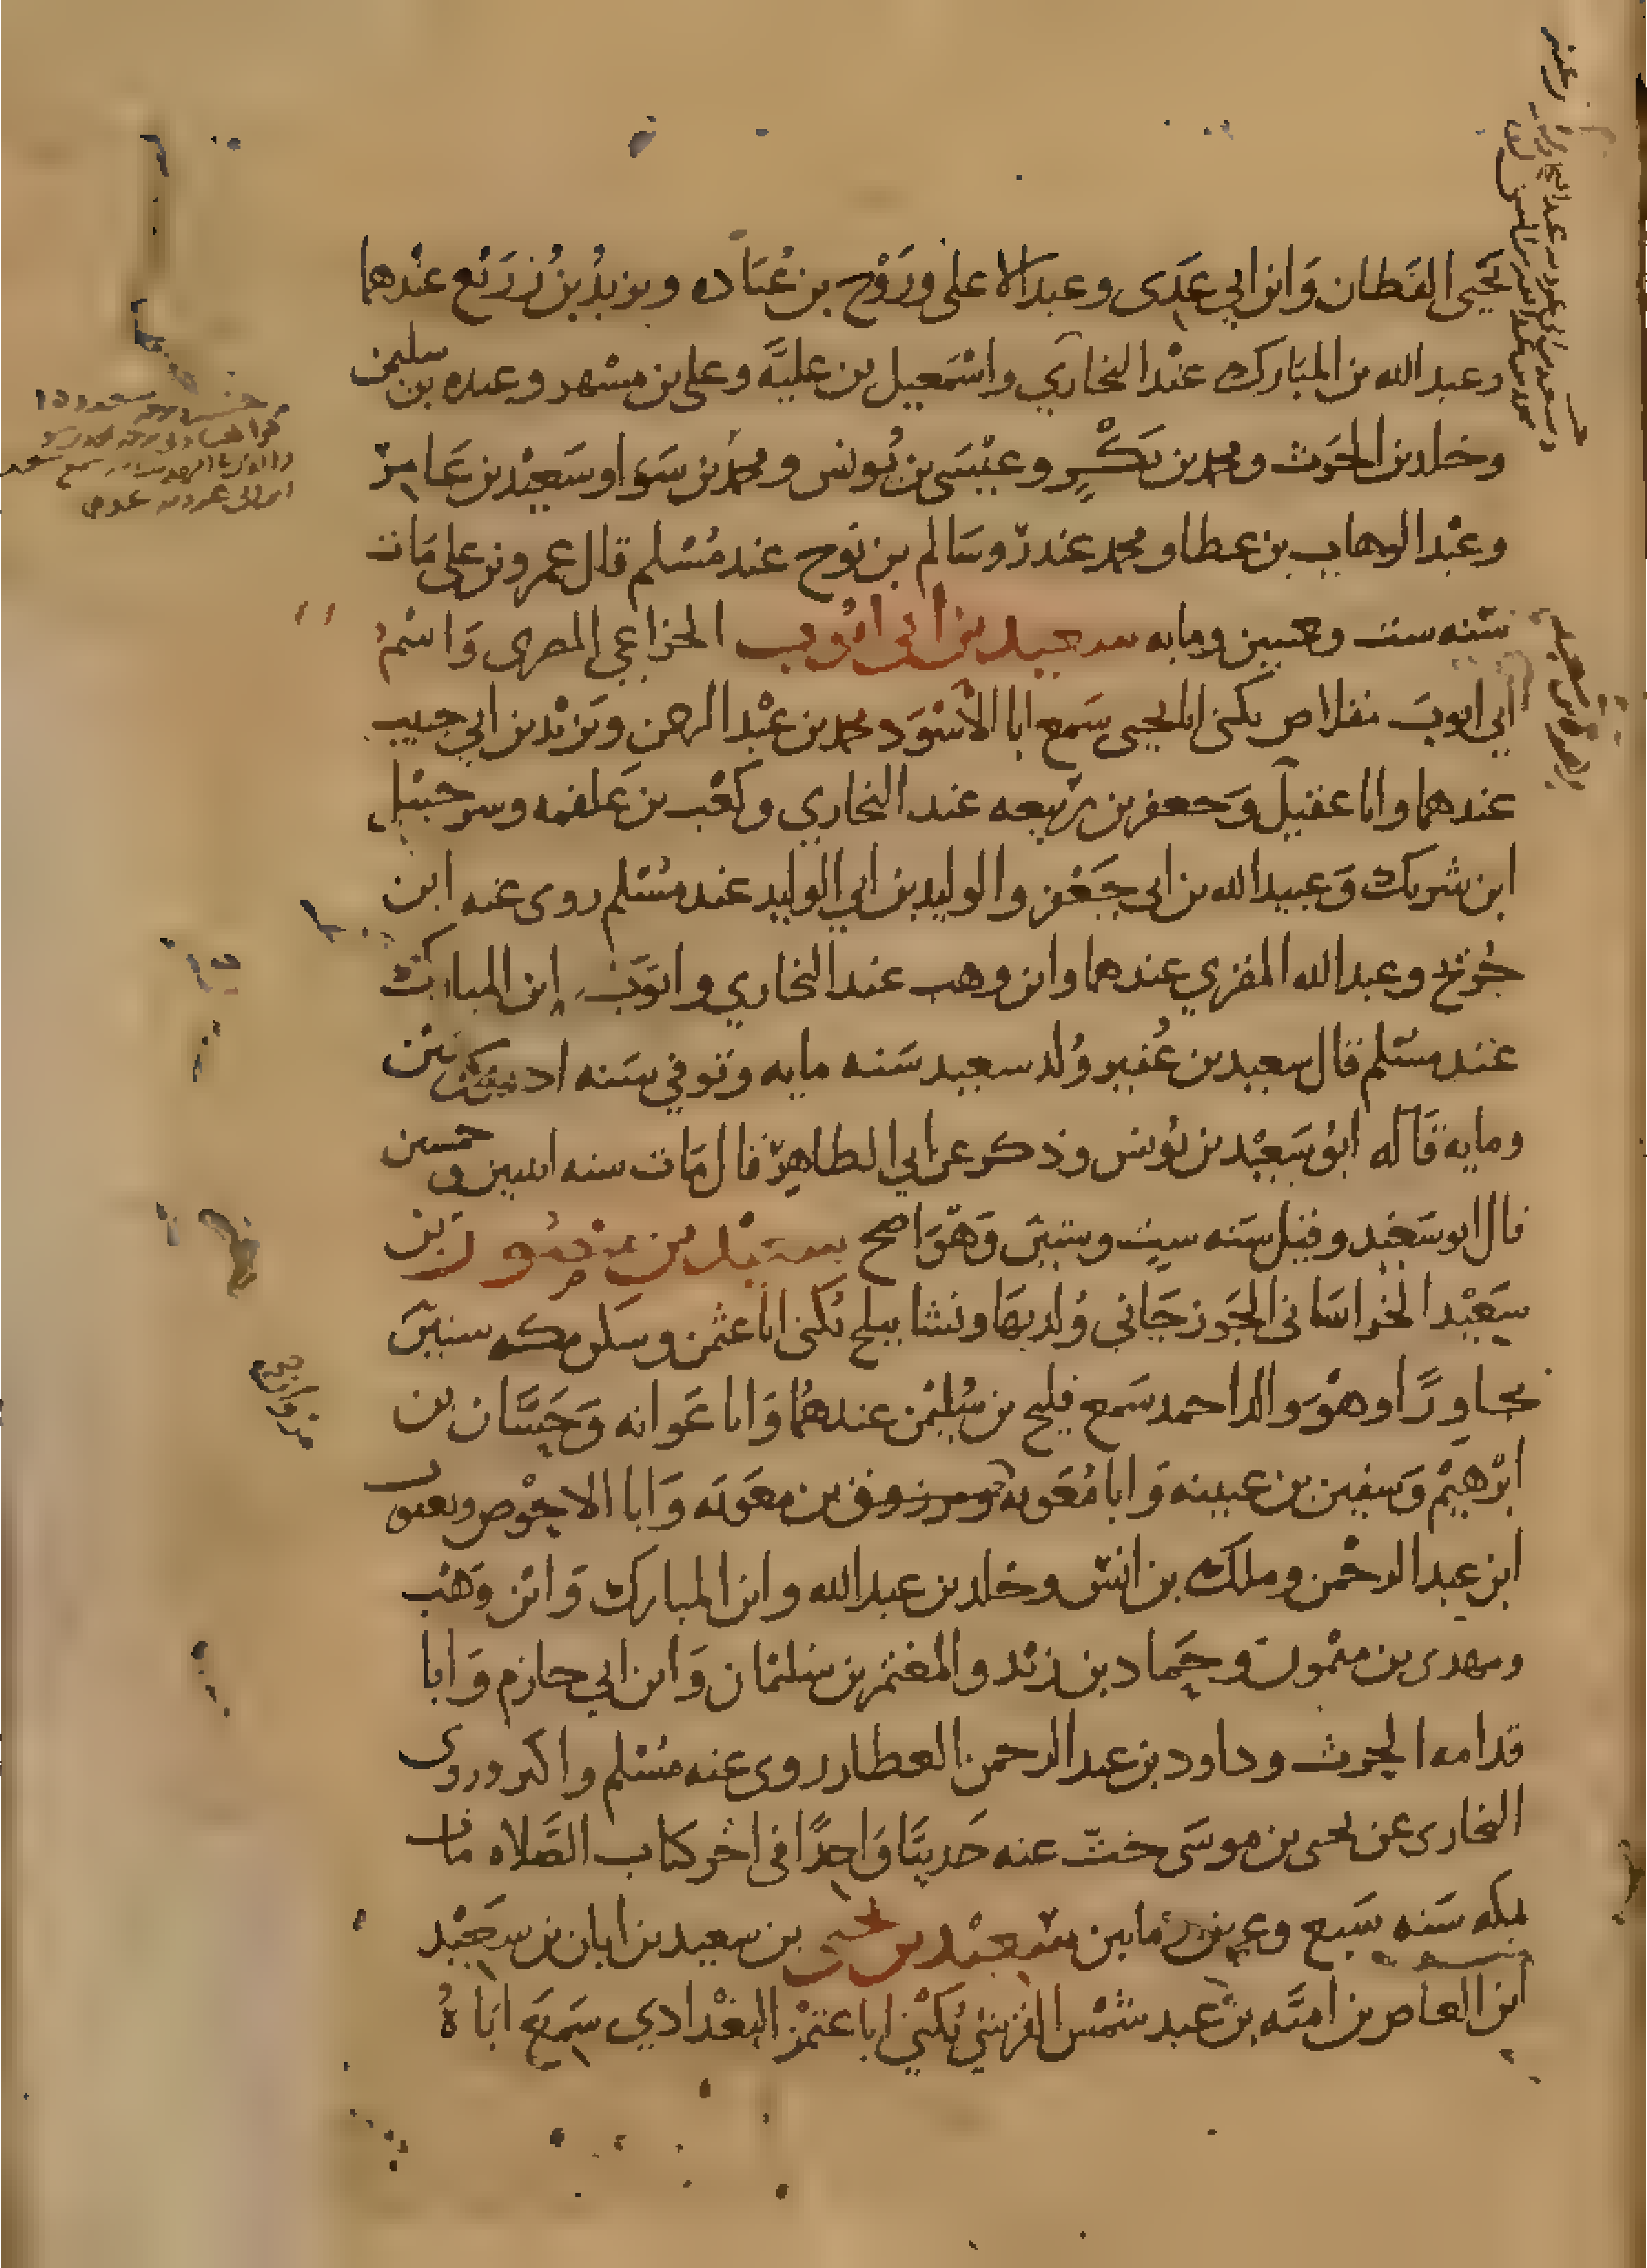 يحيى القطان وابن ابي عدى وعبد الاعلى وروح بن عباده ويزيد بن زريع عندهما
وعبد الله بن المبارك عند البخاري واسمعيل بن علية وعلى بن مسهر وعبده بن سليمن
وخلد بن الحرث ومحمد بن بكر وعيسى بن يونس ومحمد بن سوا وسعيد بن عامر
وعبد الوهاب بن عطا ومحمد غندر وسالم بن نوح عند مسلم قال عمرو بن على مات
سنه ست وخمسين ومايه سعيد بن ابى ايوب الخزاعي المصرى واسم
ابي ايوب مقلاص يكنى ابا يحيى سمع ابا الاسود محمد بن عبد الرحمن ويزيد بن ابي حبيب
عندهما وابا عقيل وجعفر بن ربيعه عند البخاري وكعب بن علقمه وسرحبيل
ابن شريك وعبيد الله بن ابى جعفر والوليد بن ابي الوليد عند مسلم روى عنه ابن
جريج وعبد الله المقري عندهما وابن وهب عند البخاري وابن المبارك
عند مسلم قال سعيد بن عفير ولد سعيد سنه مايه وتوفي سنه احدى وستين
ومايه قاله ابو سعيد بن يونس وذكر عن ابي الطاهر قال مات سنه اثنين وخمسين
قال ابو سعيد وقيل سنه ست وستين وهو اصح سعيد بن منصور بن
سعيد الخراسانى الجوزجانى ولد بها ونشا ببلخ يكنى ابا عثمن وسكن مكه سنين
مجاورا وهو والد احمد سمع فليح بن سليمن عندهما وابا عوانه وحسان بن
ابرهيم وسفين بن عيينه وابا معويه ومرزوق بن معويه وابا الاحوص ويعقوب
ابن عبد الرحمن وملك بن انس وخلد بن عبد الله وابن المبارك وابن وهب
ومهدى بن ميمون وحماد بن زيد والمعتمر بن سليمان وابن ابي حازم وابا
قدامه الحرث وداود بن عبد الرحمن العطار روى عنه مسلم واكبر وروى
البخارى عن يحيى بن موسى خت عنه حديثا واحدا فى اخر كتاب الصلاه مات
بمكه سنه سبع وعشرين ومايتين سعيد بن يحيى بن سعيد بن ابان بن سعيد
ابن العاص بن اميه بن عبد شمس القرشي يكنى ابا عثمن البغدادي سمع اباه